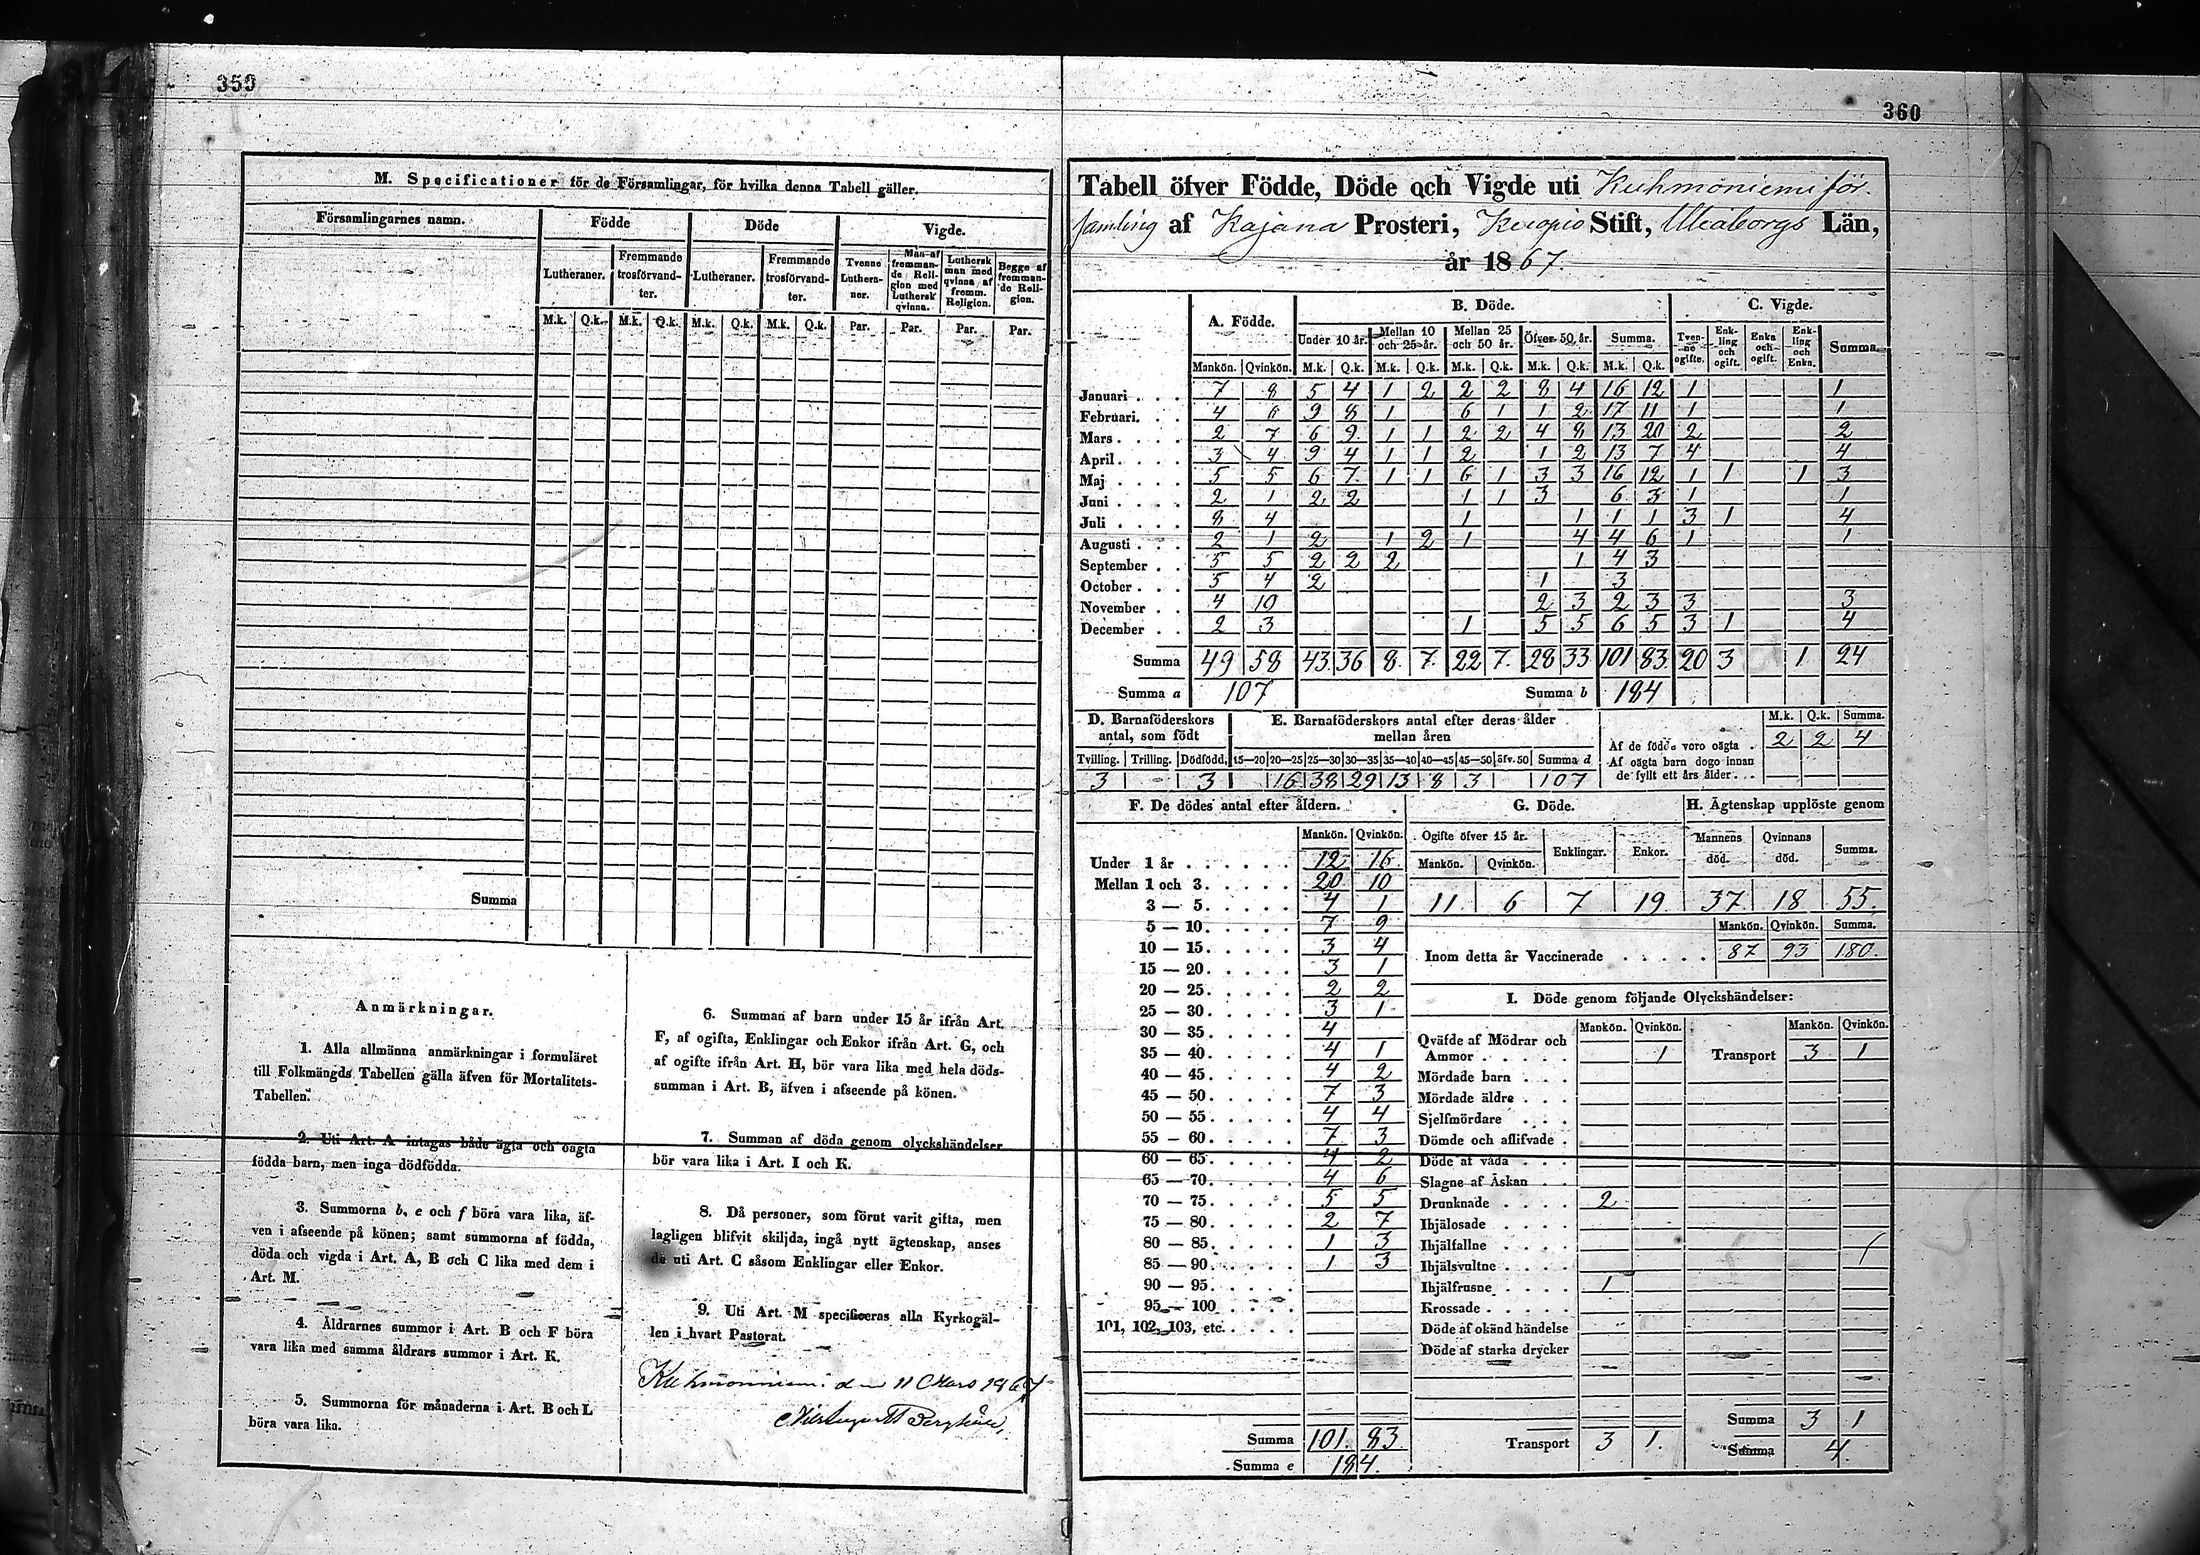 359
M. Specificationer för de Församlingar, för hvilka denna Tabell gäller.
Församlingarnes namn. Födde Döde Vigde.
Lutheraner. Fremmande trosförvandter. Lutheraner. Fremmande trosförvandter. Tvenne Lutheraner. Man af fremmande Religion med Luthersk qvinna. Luthersk man med qvinna af fremm. Religion. Begge af fremmande Religion.
M.k. Q.k. M.k. Q.k. M.k. Q.k. M.k. Q.k. Par. Par. Par. Par.
Summa
Anmärkningar.
1. Alla allmänna anmärkningar i formuläret
till Folkmängds Tabellen gälla äfven för Mortalitets-
Tabellen.
2. Uti Art. A intagas både ägta och oägta
födda barn, men inga dödfödda.
3. Summorna b, e och f böra vara lika, äf-
ven i afseende på könen; samt summorna af födda,
döda och vigda i Art. A, B och C lika med dem i
Art. M.
4. Åldrarnes summor i Art. B och F böra
vara lika med samma åldrars summor i Art. K.
5. Summorna för månaderna i Art. B och L
böra vara lika.
6. Summan af barn under 15 år ifrån Art.
F, af ogifta, Enklingar och Enkor ifrån Art. G, och
af ogifte ifrån Art. H, bör vara lika med hela döds-
summan i Art. B, äfven i afseende på könen.
7. Summan af döda genom olyckshändelser
bör vara lika i Art. I och K.
8. Då personer, som förut varit gifta, men
lagligen blifvit skiljda, ingå nytt ägtenskap, anses
de uti Art. C såsom Enklingar eller Enkor.
9. Uti Art. M specificeras alla Kyrkogäl-
len i hvart Pastorat.
Kuhmoniemi den 11 Mars
360
Tabell öfver Födde, Döde och Vigde uti Kuhmoniemi för-
samling af Kajana Prosteri, Kuopio Stift, Uleåborgs Län,
år 1867.
A. Födde. B. Döde. C. Vigde.
Under 10 år. Mellan 10 och 25 år. Mellan 25 och 50 år. Öfver 50 år. Summa. Tvenne ogifte. Enkling och ogift. Enka och ogift. Enkling och Enka. Summa.
Mankön. Qvinkön. M.k. Q.k. M.k. Q.k. M.k. Q.k. M.k. Q.k. M.k. Q.k.
Januari . . . 7 8 5 4 1 2 2 2 8 4 16 12 1 1
Februari. . . 4 6 9 8 1 6 1 1 2 17 11 1 1
Mars . . . . 2 7 6 9 1 1 2 2 4 8 13 20 2 2
April . . . . 3 4 9 4 1 1 2 1 2 13 7 4 4
Maj . . . . 5 5 6 7 1 1 6 1 3 3 16 12 1 1 1 3
Juni . . . . 2 1 2 2 1 1 3 6 3 1 1
Juli . . . . 8 4 1 1 1 1 3 1 4
Augusti . . . 2 1 2 1 2 1 4 4 6 1 1
September . . 5 5 2 2 2 1 4 3
October . . . 5 4 2 1 3
November . . 4 10 2 3 2 3 3 3
December . . 2 3 1 5 5 6 5 3 1 4
Summa 49 58 43 36 8 7 22 7 28 33 101 83 20 3 1 24
Summa a 107 Summa b 184
D. Barnaföderskors antal, som född E. Barnaföderskors antal efter deras ålder mellan åren
Tvilling. Trilling. Dödfödd. 15—20 20—25 25—30 30—35 35—40 40—45 45—50 öfv. 50 Summa d
3 - 3 16 38 29 13 8 3 107
M.k. Q.k. Summa.
Af de födde voro oägta . 2 2 4
Af oägta barn dogo innan
de fyllt ett års ålder . . .
F. De dödes antal efter åldern.
Mankön. Qvinkön.
Under 1 år . . . . . . 12 16
Mellan 1 och 3. . . . . 20 10
3 — 5. . . . . 4 1
5 — 10. . . . . 7 9
10 — 15. . . . . 3 4
15 — 20. . . . . 3 1
20 — 25. . . . . 2 2
25 — 30. . . . . 3 1
30 — 35. . . . . 4
35 — 40. . . . . 4 1
40 — 45. . . . . 4 2
45 — 50. . . . . 7 3
50 — 55. . . . . 4 4
55 — 60. . . . . 7 3
60 — 65. . . . . 4 2
65 — 70. . . . . 4 6
70 — 75. . . . . 5 5
75 — 80. . . . . 2 7
80 — 85. . . . . 1 3
85 — 90. . . . . 1 3
90 — 95. . . . .
95 — 100 . . . .
101, 102, 103, etc. . . . .
Summa 101. 83
Summa e 184.
G. Döde.
Ogifte öfver 15 år. Enklingar. Enkor.
Mankön. Qvinkön.
11 6 7 19
H. Ägtenskap upplöste genom
Mannens död. Qvinnans död. Summa.
37 18 55.
Mankön. Qvinkön. Summa.
Inom detta år Vaccinerade . . . . . 87 93 180.
I. Döde genom följande Olyckshändelser:
Mankön. Qvinkön. Mankön. Qvinkön.
Qväfde af Mödrar och
Ammor . . . . . 1 Transport 3 1
Mördade barn . . .
Mördade äldre . . .
Sjelfmördare . . . .
Dömde och aflifvade .
Döde af våda . . .
Slagne af Åskan . .
Drunknade . . . . 2
Ihjälosade . . . .
Ihjälfallne . . . .
Ihjälsvultne . . . .
Ihjälfrusne . . . . 1
Krossade . . . . .
Döde af okänd händelse
Döde af starka drycker
Summa 3 1
Transport 3 1. Summa 4.